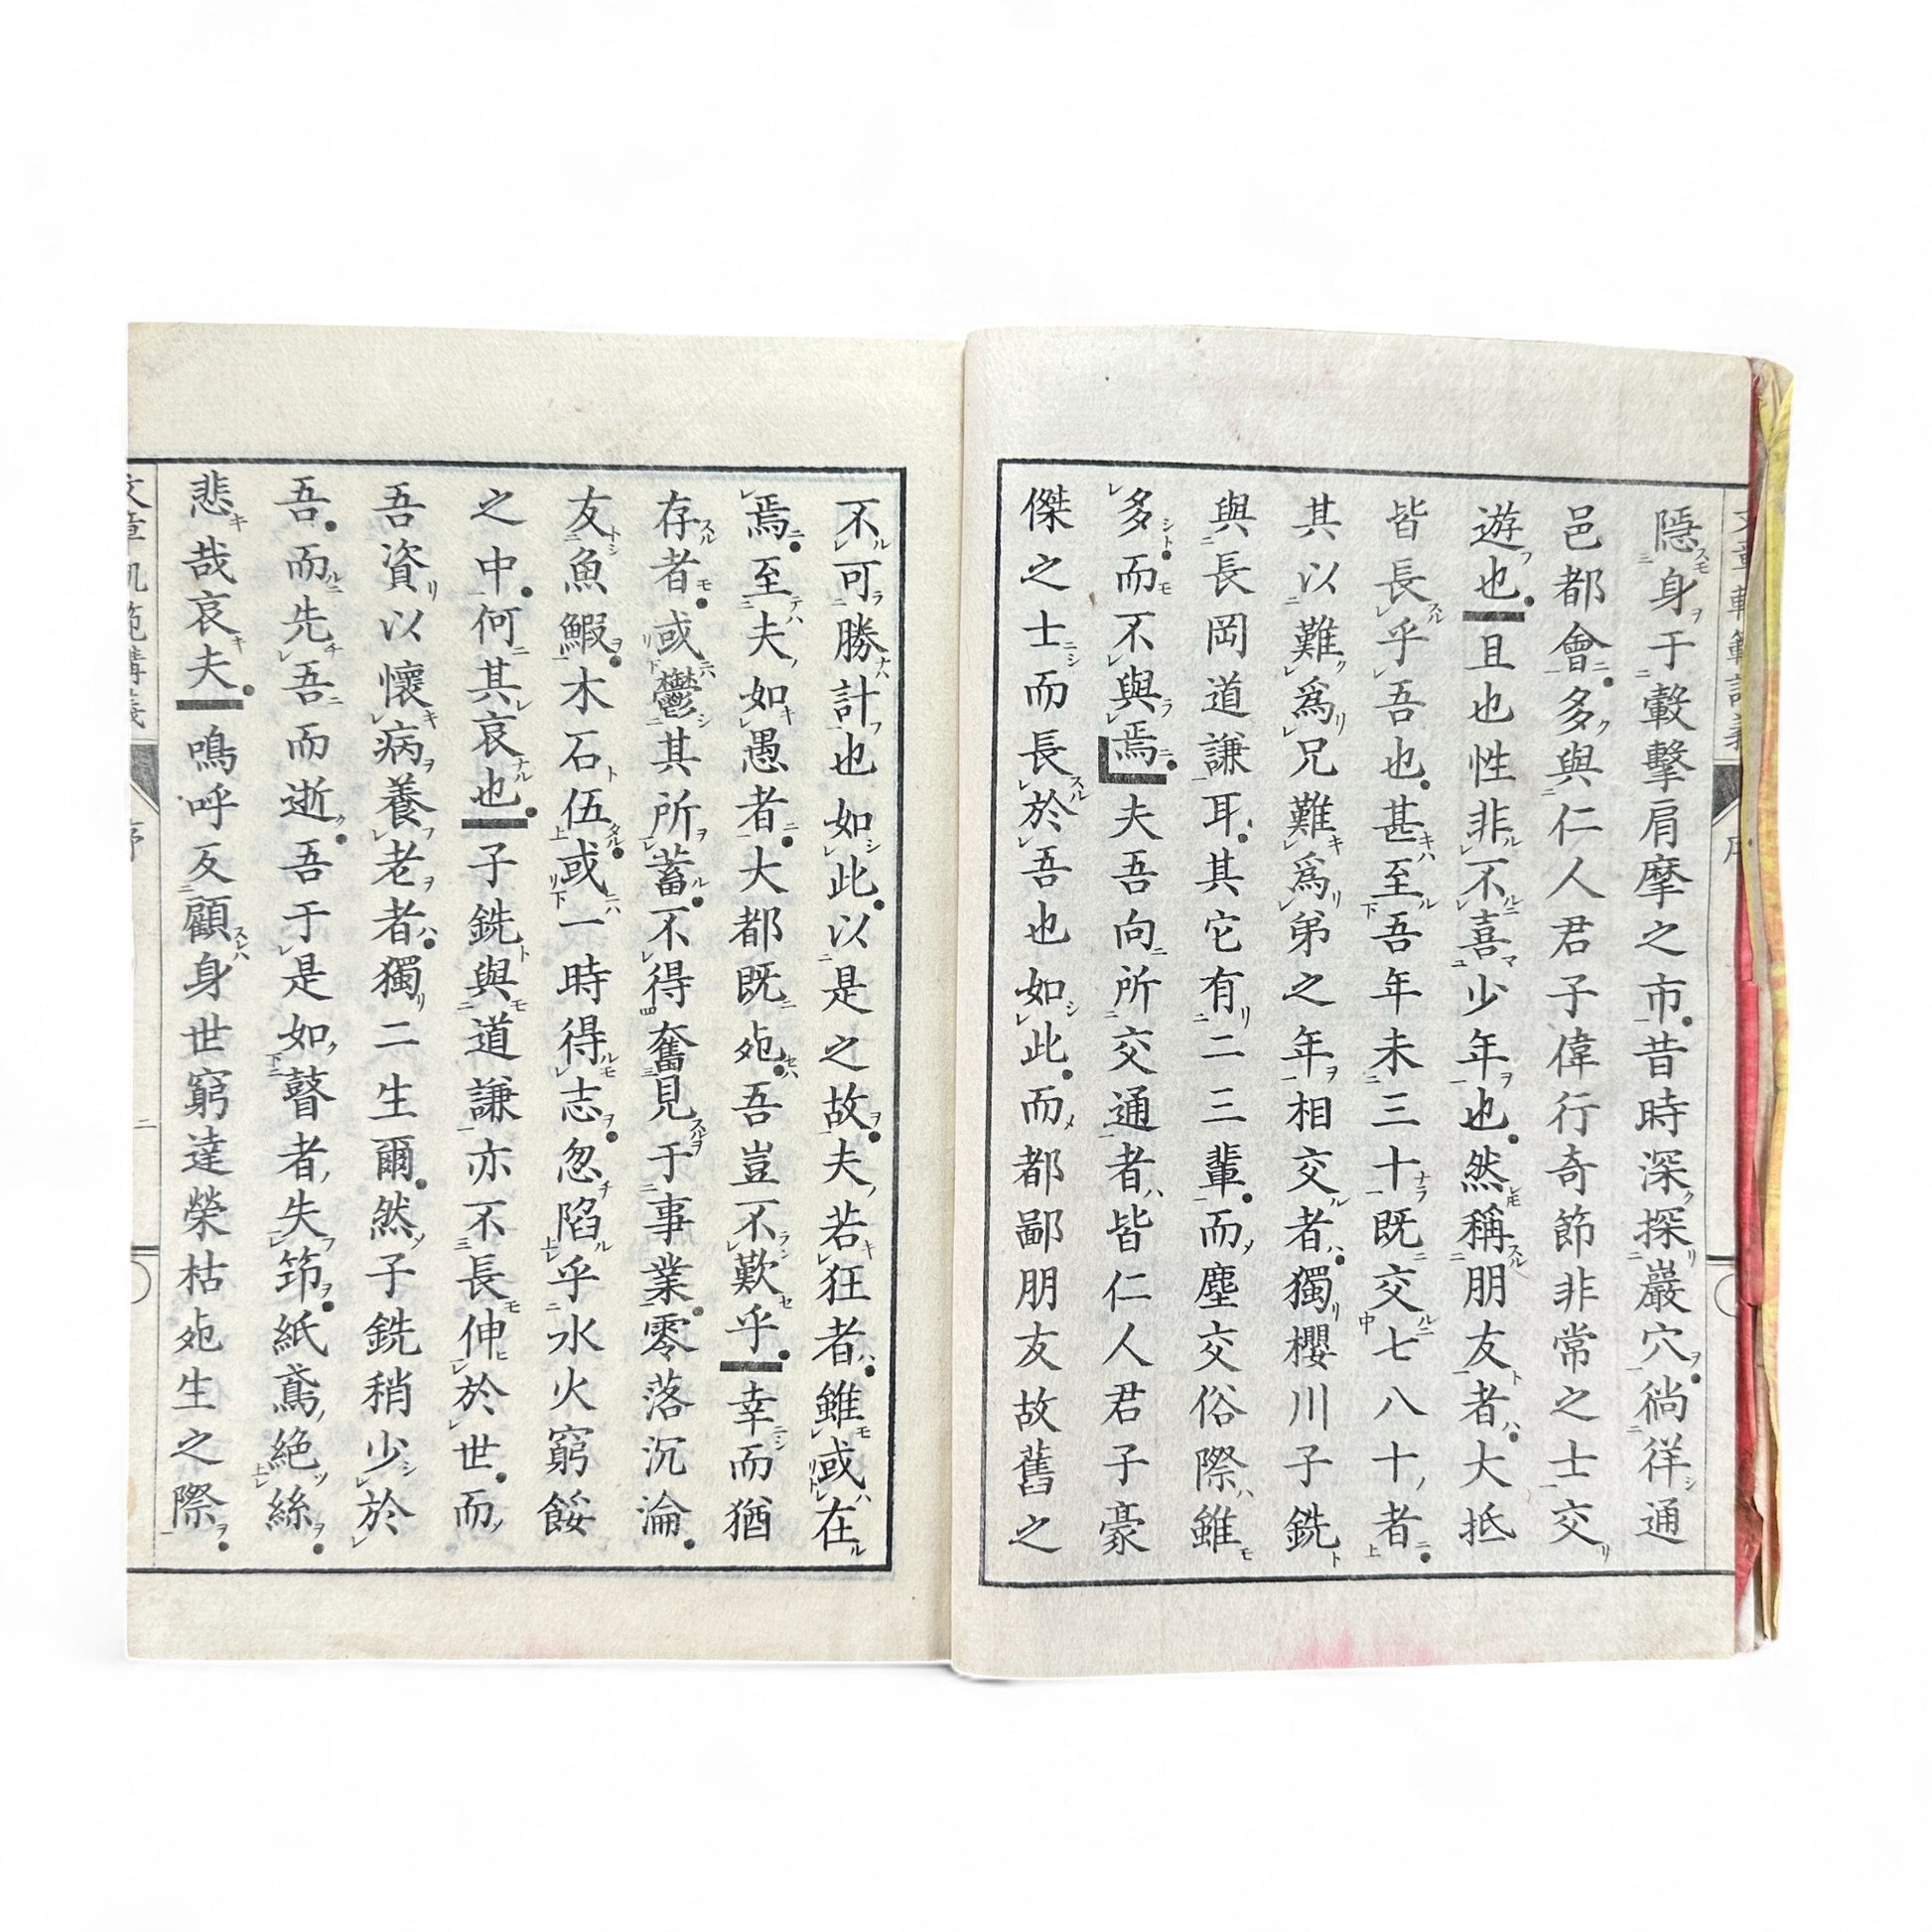 隱身于轂擊肩摩之市昔時深探巖穴徜徉通
邑都會多與仁人君子偉行奇節非常之士交
遊也且也性非不喜少年也然稱朋友者大抵
皆長乎吾也甚至吾年未三十既交七八十者
其以難爲兄難爲弟之年相交者獨櫻川子銑
與長岡道謙耳其它有二三輩而塵交俗際雖
多而不與焉夫吾向所交通者皆仁人君子豪
傑之士而長於吾也如此而都鄙朋友故舊之
不可勝計也如此以是之故夫若狂者雖或在
焉至夫如愚者大都既死吾豈不歎乎幸而猶
存者或鬱其所蓄不得奮見于事業零落沉淪
友魚鰕木石伍或一時得志忽陷乎水火窮餒
之中何其哀也子銑與道謙亦不長伸於世而
吾資以懷病養老者獨二生爾然子銑稍少於
吾而先吾而逝吾于是如瞽者失筇紙鳶絕絲
悲哉哀夫嗚呼反顧身世窮達榮枯死生之際
文章軌範講義
序
二